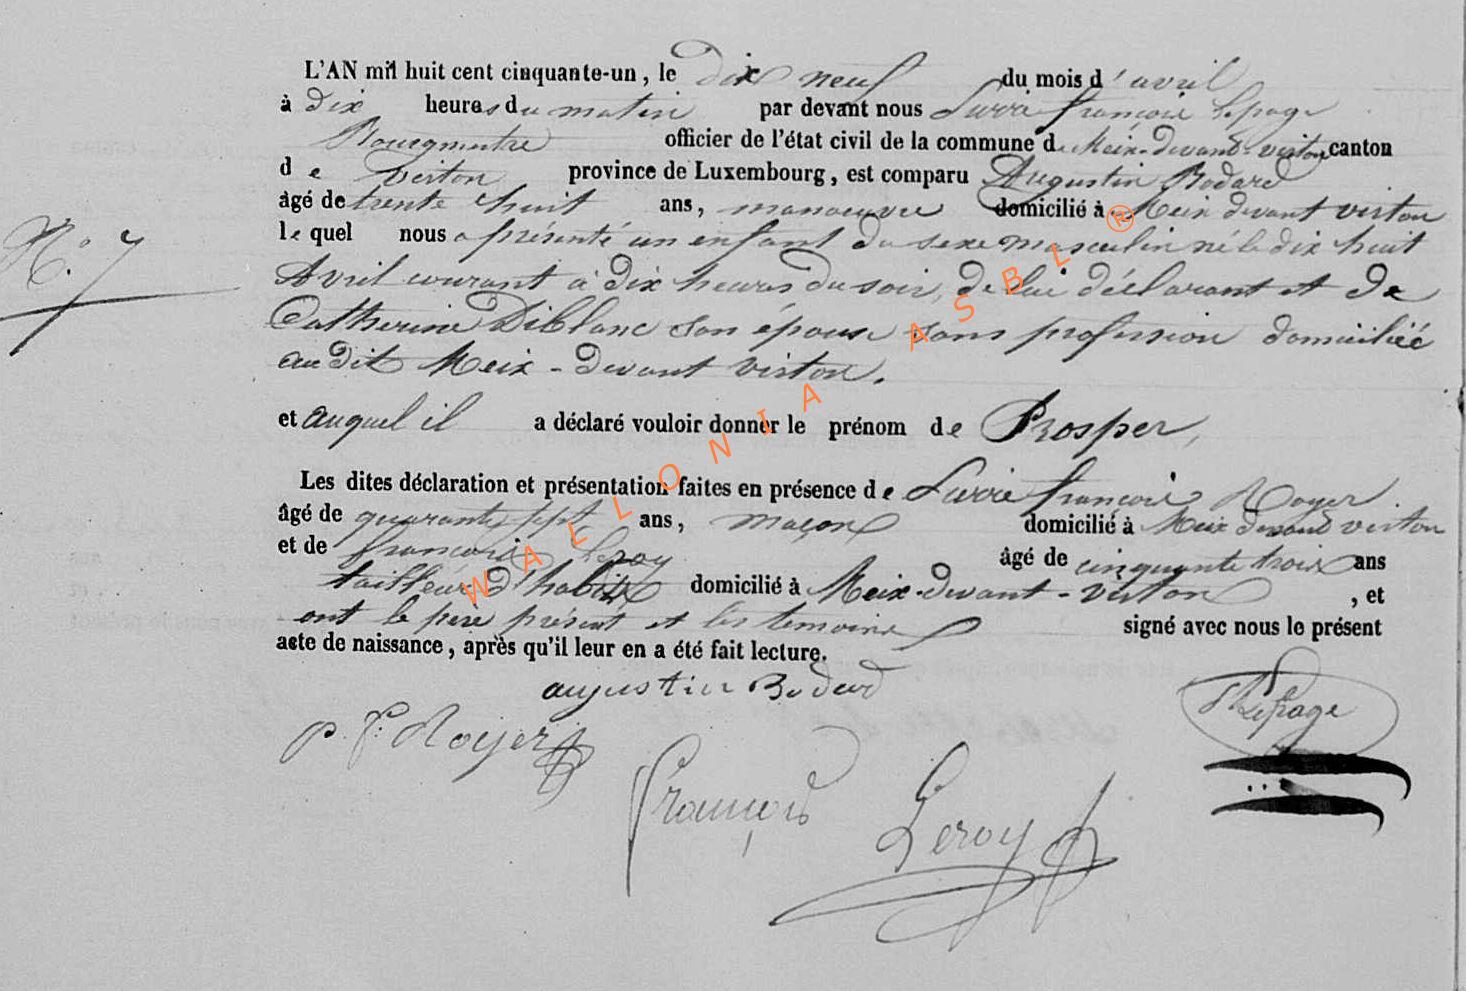 L'AN mil huit cent cinquante-un, le dix neuf du mois d'avril
à dix heures du matin par devant nous Pierre françois Lepage
Bourgmestre officier de l'état civil de la commune de Meix-devant-virton canton
de virton province de Luxembourg, est comparu Augustin Bodard
âgé de trente huit ans, manoeuvre domicilié à Meix devant virton
le quel nous a présenté un enfant du sexe masculin né le dix huit
N.° 7
Avril courant à dix heures du soir, de lui déclarant et de
Catherine Diblanc son épouse sans profession domiciliée
audit Meix-devant virton.
et auquel il a déclaré vouloir donner le prénom de Prosper,
Les dites déclaration et présentation faites en présence de Pierre françois Royer
âgé de quarante sept ans, maçon domicilié à Meix devant virton
et de françois Leroy âgé de cinquante trois ans
tailleur d'habits domicilié à Meix-devant-virton, et
ont le père présent et les temoins signé avec nous le présent
acte de naissance, après qu'il leur en a été fait lecture.
augustin Bodard
p. f. Royer
Lepage
françois Leroy
WALLONIA ASBL ®